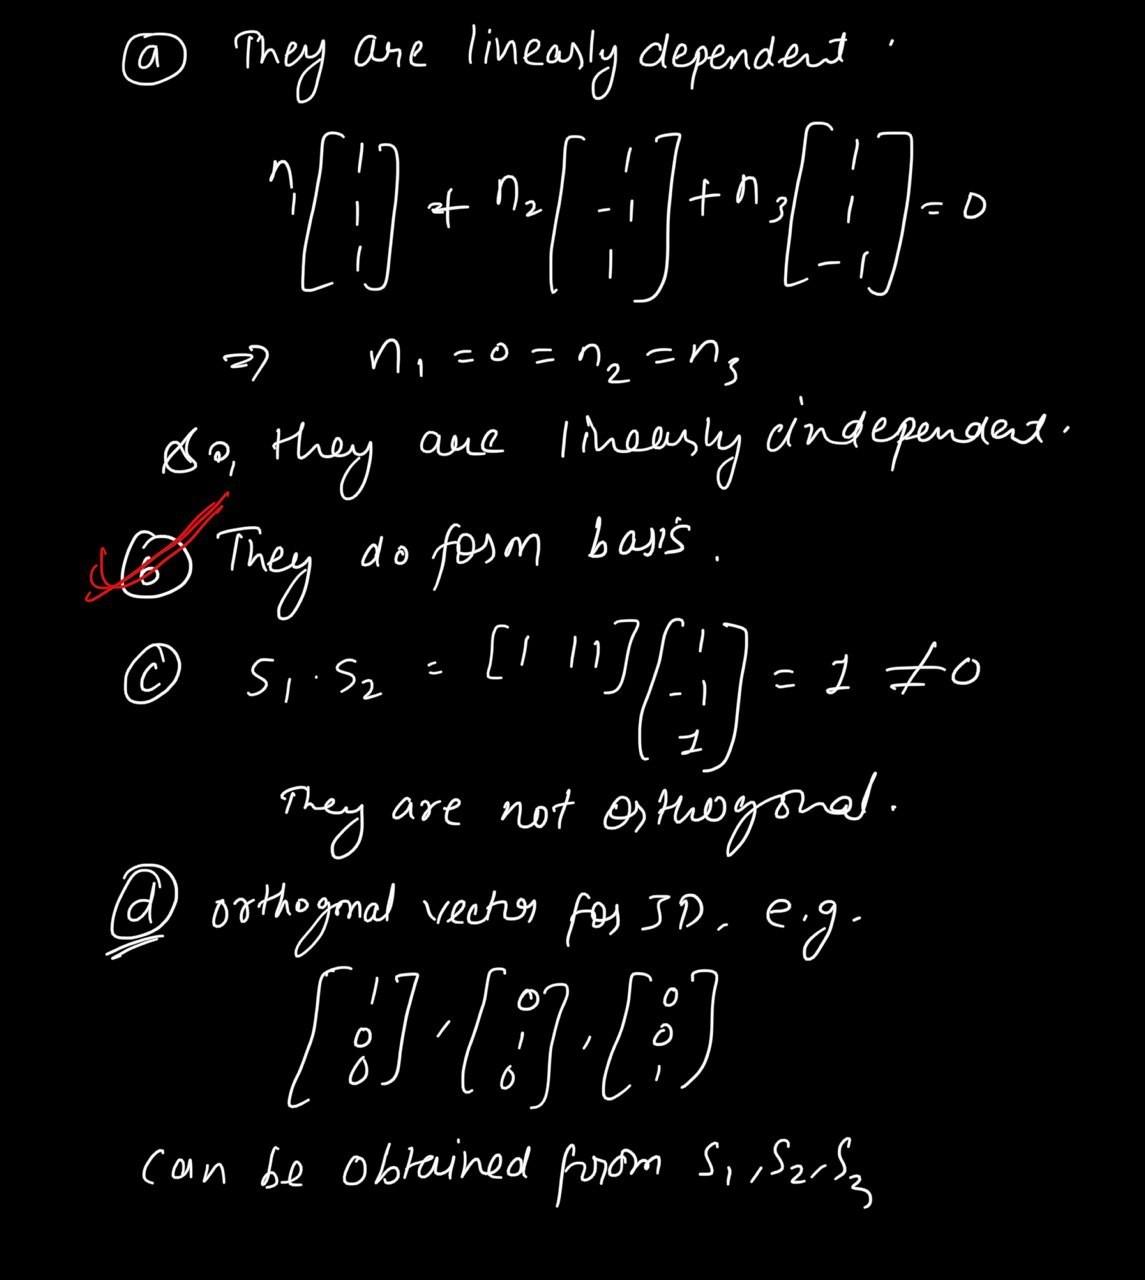 (a) They are linearly dependent.
n₁ [1 1 1] + n₂ [1 -1 1] + n₃ [1 1 -1] = 0
=> n₁ = 0 = n₂ = n₃
So, they are linearly independent.
(b) They do form basis.
(c) S₁ · S₂ = [1 1 1] [1 -1 1] = 1 ≠ 0
They are not orthogonal.
(d) orthogonal vector for 3D. e.g.
[1 0 0], [0 1 0], [0 0 1]
can be obtained from S₁, S₂, S₃